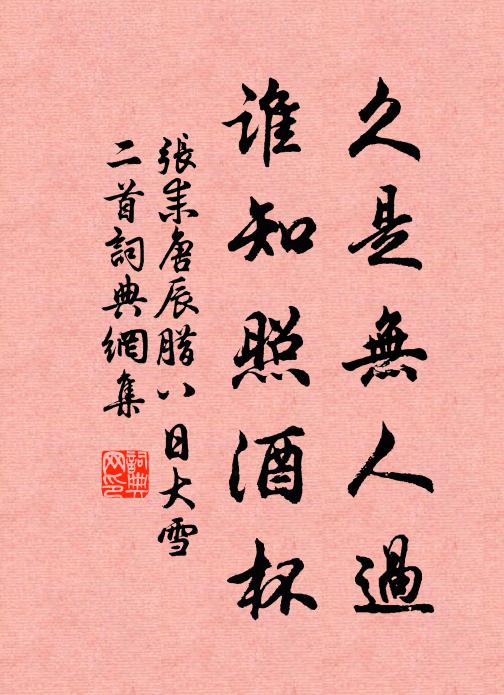 久是無人過
誰知照酒杯
張耒庚辰腊八日大雪
二首詞典網集
詞典
网印